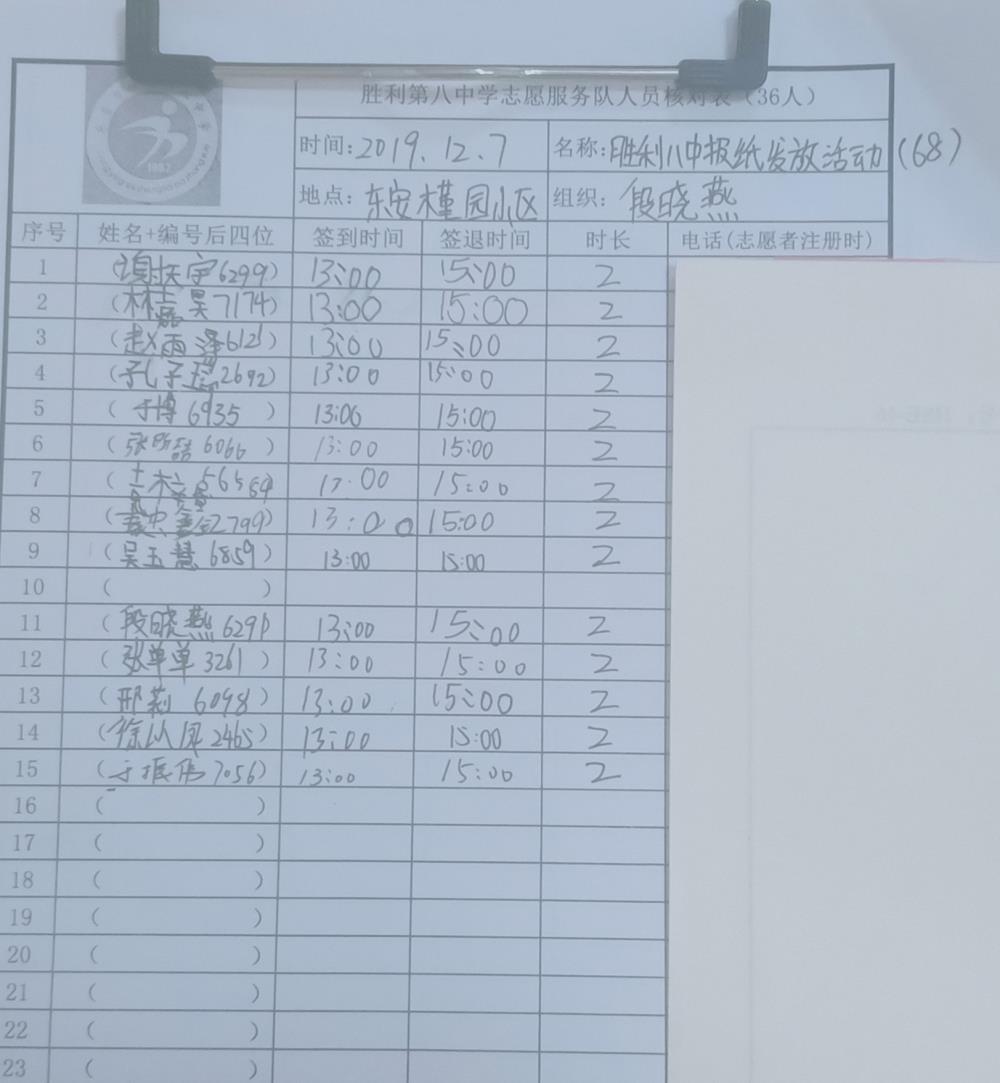 胜利第八中学志愿服务队人员核对表（36人）
时间:2019.12.7 名称:胜利八中报纸发放活动(68)
地点: 东安槿园小区 组织: 段晓燕
序号 姓名+编号后四位 签到时间 签退时间 时长 电话(志愿者注册时)
1 ( 宇6299) 13:00 15:00 2
2 (林嘉昊7174) 13:00 15:00 2
3 (赵雨泽6121) 13:00 15:00 2
4 (孔子 2692) 13:00 15:00 2
5 (于博 6935 ) 13:00 15:00 2
6 (张 6066 ) 13:00 15:00 2
7 ( ) 00 15:00 2
8 ( 2799) 13:00 15:00 2
9 (吴玉慧 6859) 13:00 15:00 2
10 ( )
11 (段晓燕 6291) 13:00 15:00 2
12 (张单单 3261 ) 13:00 15:00 2
13 (邢莉 6098) 13:00 15:00 2
14 (徐 凤2465) 13:00 15:00 2
15 (于振伟7056) 13:00 15:00 2
16 ( )
17 ( )
18 ( )
19 ( )
20 ( )
21 ( )
22 ( )
23 ( )